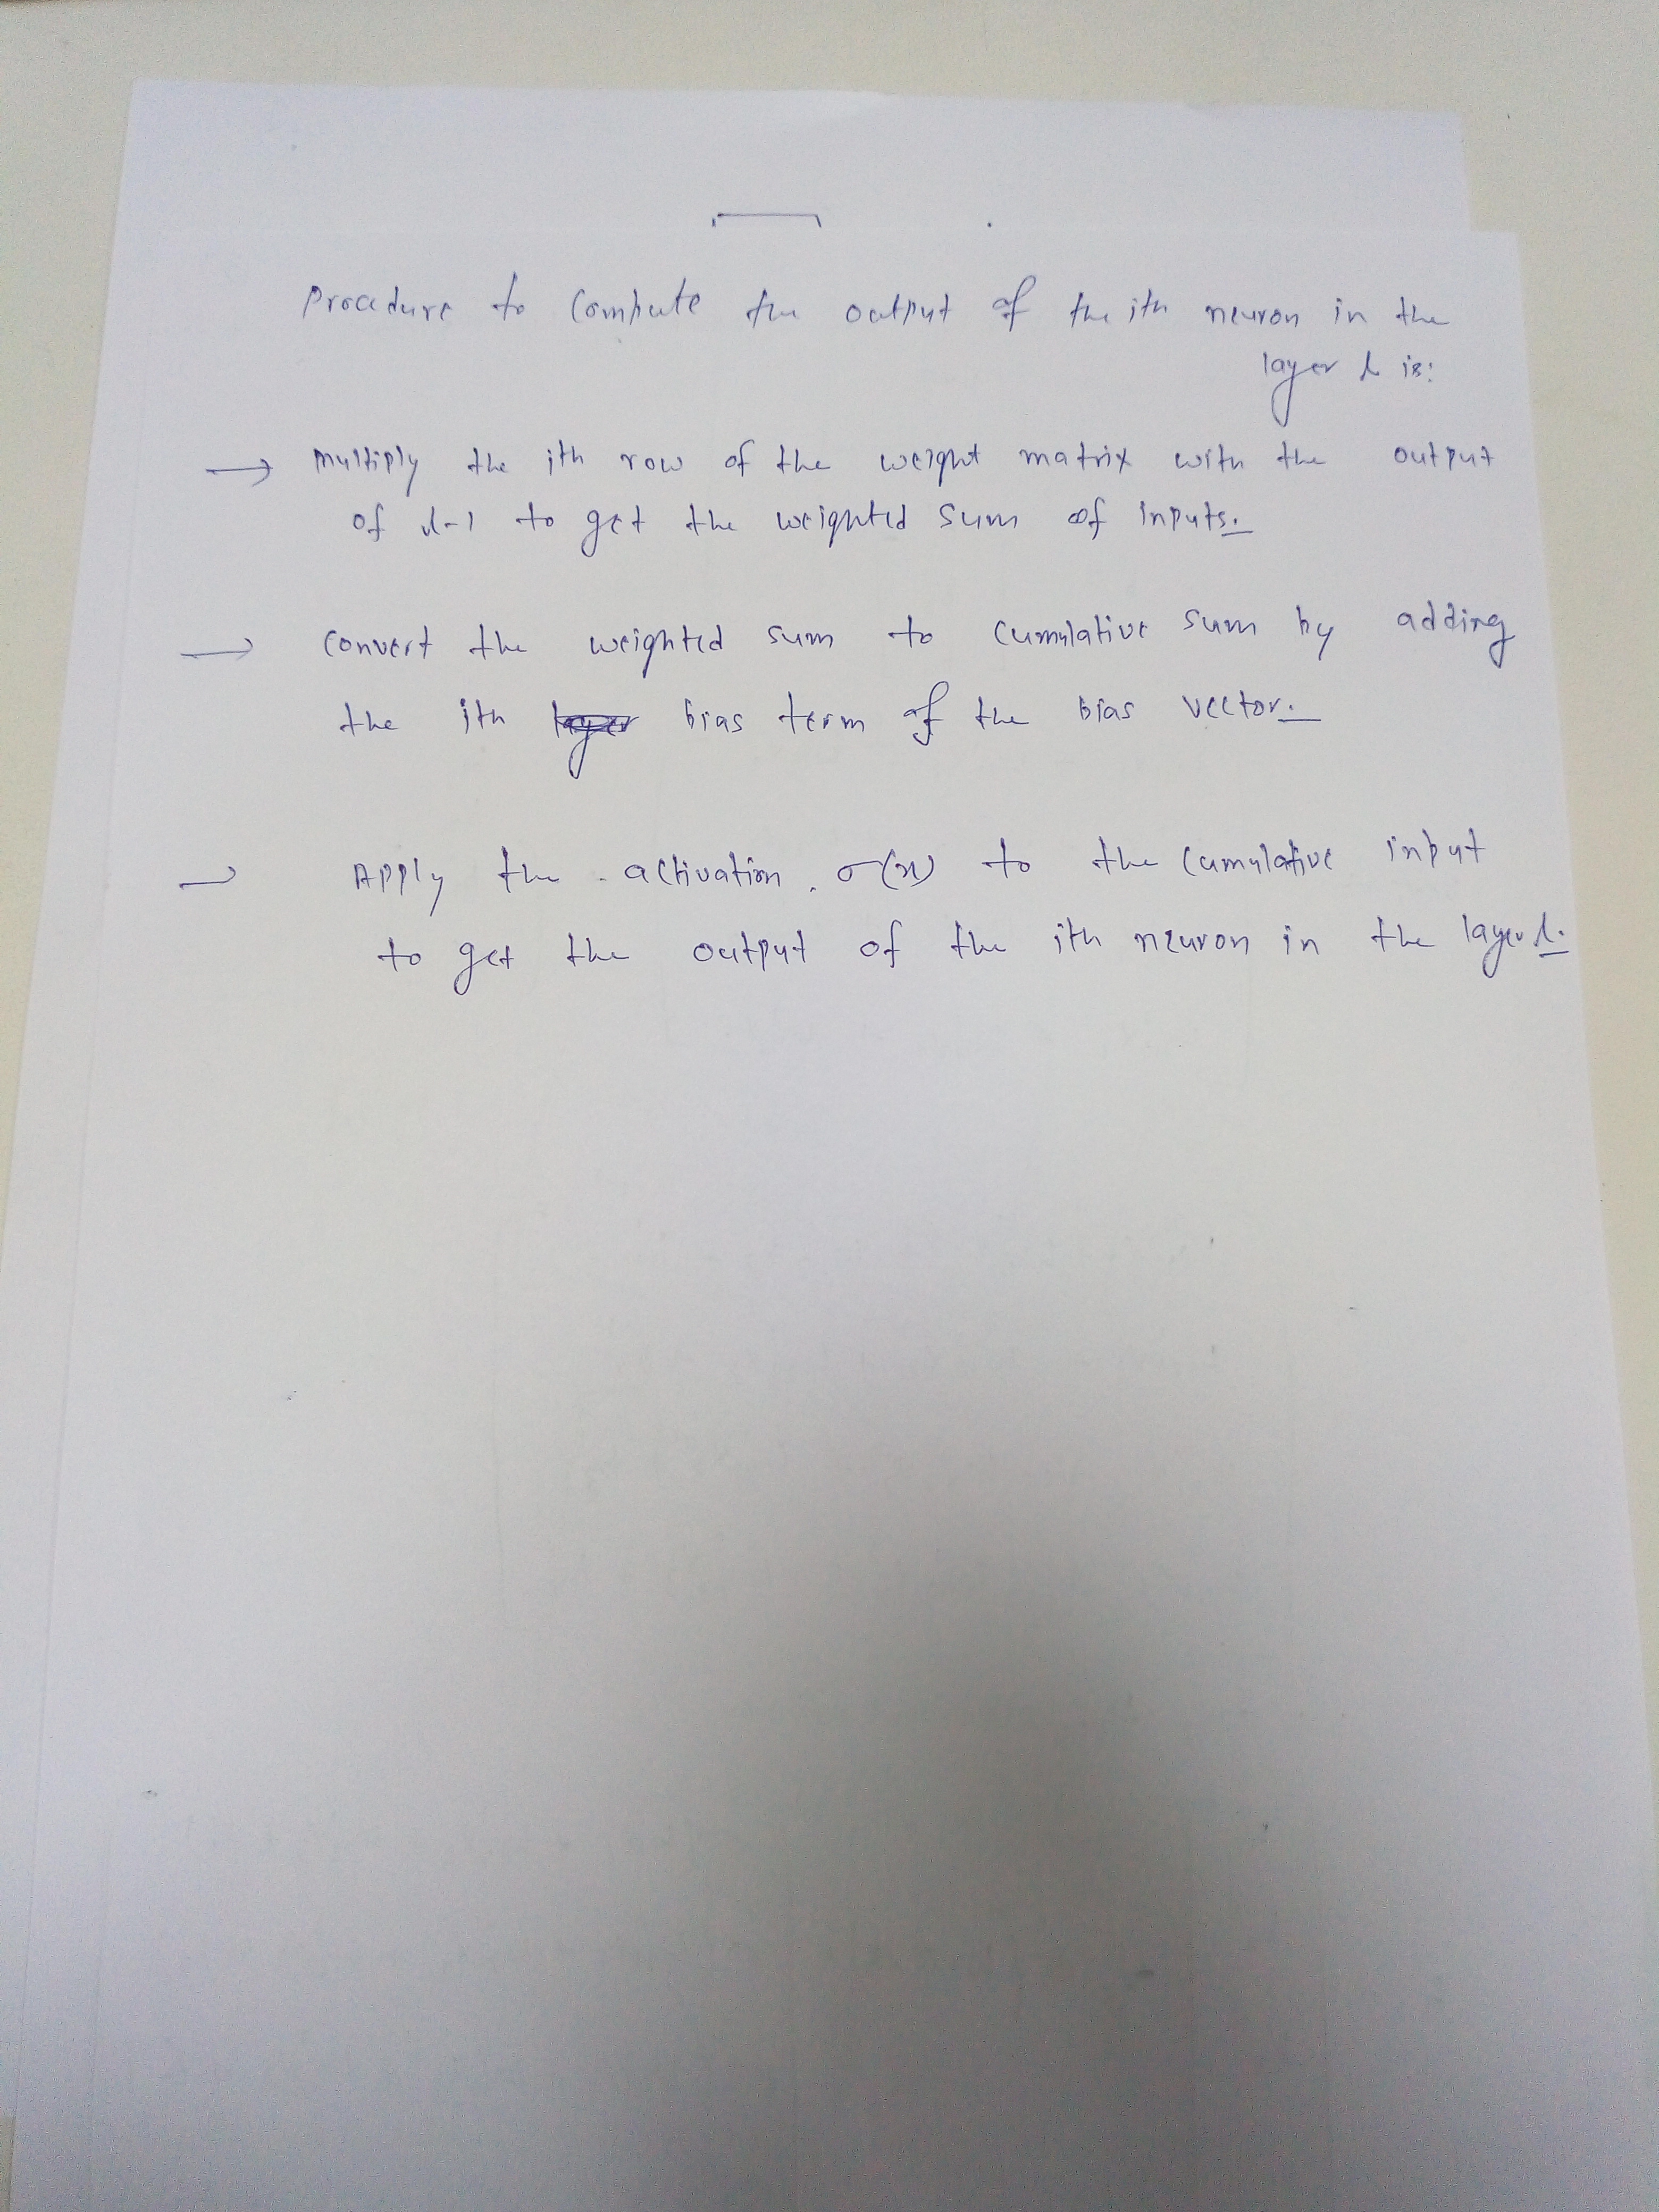 Procedure to compute the output of the ith neuron in the
layer l is:
→ Multiply the ith row of the weight matrix with the output
of l-1 to get the weighted sum of inputs.
→ Convert the weighted sum to cumulative sum by adding
the ith bias term of the bias vector.
→ Apply the activation σ(x) to the cumulative input
to get the output of the ith neuron in the layer l.